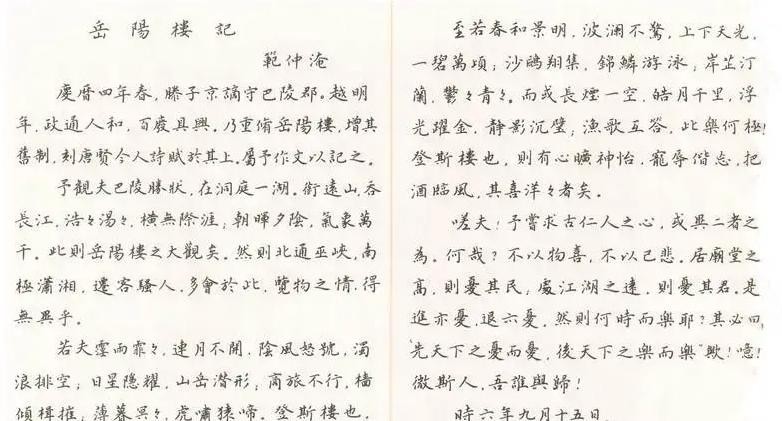 岳陽樓記
範仲淹
慶曆四年春，滕子京謫守巴陵郡。越明
年，政通人和，百廢具興。乃重脩岳陽樓，增其
舊制，刻唐賢今人詩賦於其上。屬予作文以記之。
予觀夫巴陵勝狀，在洞庭一湖。銜遠山，吞
長江，浩々湯々，橫無際涯，朝暉夕陰，氣象萬
千。此則岳陽樓之大觀矣。然則北通巫峽，南
極瀟湘，遷客騷人，多會於此，覽物之情，得
無異乎。
若夫霪雨霏々，連月不開，陰風怒號，濁
浪排空；日星隱耀，山岳潛形；商旅不行，檣
傾楫摧，薄暮冥々，虎嘯猿啼。登斯樓也，
至若春和景明，波瀾不驚，上下天光，
一碧萬頃；沙鷗翔集，錦鱗游泳；岸芷汀
蘭，鬱々青々。而或長煙一空，皓月千里，浮
光躍金，靜影沉璧；漁歌互答，此樂何極！
登斯樓也，則有心曠神怡，寵辱偕忘，把
酒臨風，其喜洋々者矣。
嗟夫！予嘗求古仁人之心，或異二者之
為。何哉？不以物喜，不以己悲。居廟堂之
高，則憂其民；處江湖之遠，則憂其君。是
進亦憂，退亦憂，然則何時而樂耶？其必曰，
"先天下之憂而憂，後天下之樂而樂"歟！噫！
微斯人，吾誰與歸！
時六年九月十五日